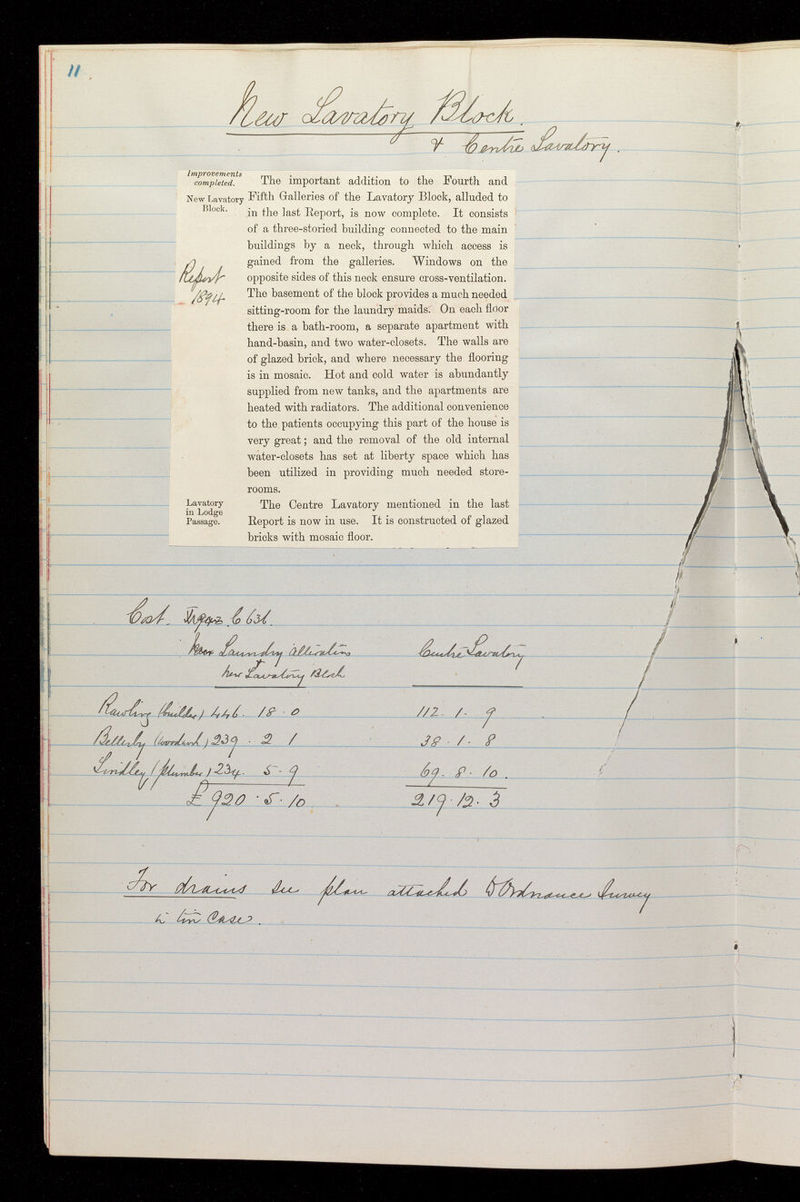 11.
New Lavatory Block.
& Centre Lavatory.
Improvements
completed.
New Lavatory
Block.
Report
1894
The important addition to the Fourth and
Fifth Galleries of the Lavatory Block, alluded to
in the last Report, is now complete. It consists
of a three-storied building connected to the main
buildings by a neck, through which access is
gained from the galleries. Windows on the
opposite sides of this neck ensure cross-ventilation.
The basement of the block provides a much needed
sitting-room for the laundry maids. On each floor
there is a bath-room, a separate apartment with
hand-basin, and two water-closets. The walls are
of glazed brick, and where necessary the flooring
is in mosaic. Hot and cold water is abundantly
supplied from new tanks, and the apartments are
heated with radiators. The additional convenience
to the patients occupying this part of the house is
very great; and the removal of the old internal
water-closets has set at liberty space which has
been utilized in providing much needed store-
rooms.
Lavatory
in Lodge
Passage.
The Centre Lavatory mentioned in the last
Report is now in use. It is constructed of glazed
bricks with mosaic floor.
Cost. 636.
Laundry alterations Centre Lavatory
+
New Lavatory Block
Rawling (builder) 446. 18. 0 112. 1. 9
Bellerby (woodwork) 239. 2 1 38. 1. 8
Lindley (plumber) 234. 5. 9 69. 8. 10.
£920. 5. 10 219. 12. 3
For drains see plan attached to Ordnance Survey
in tin case.